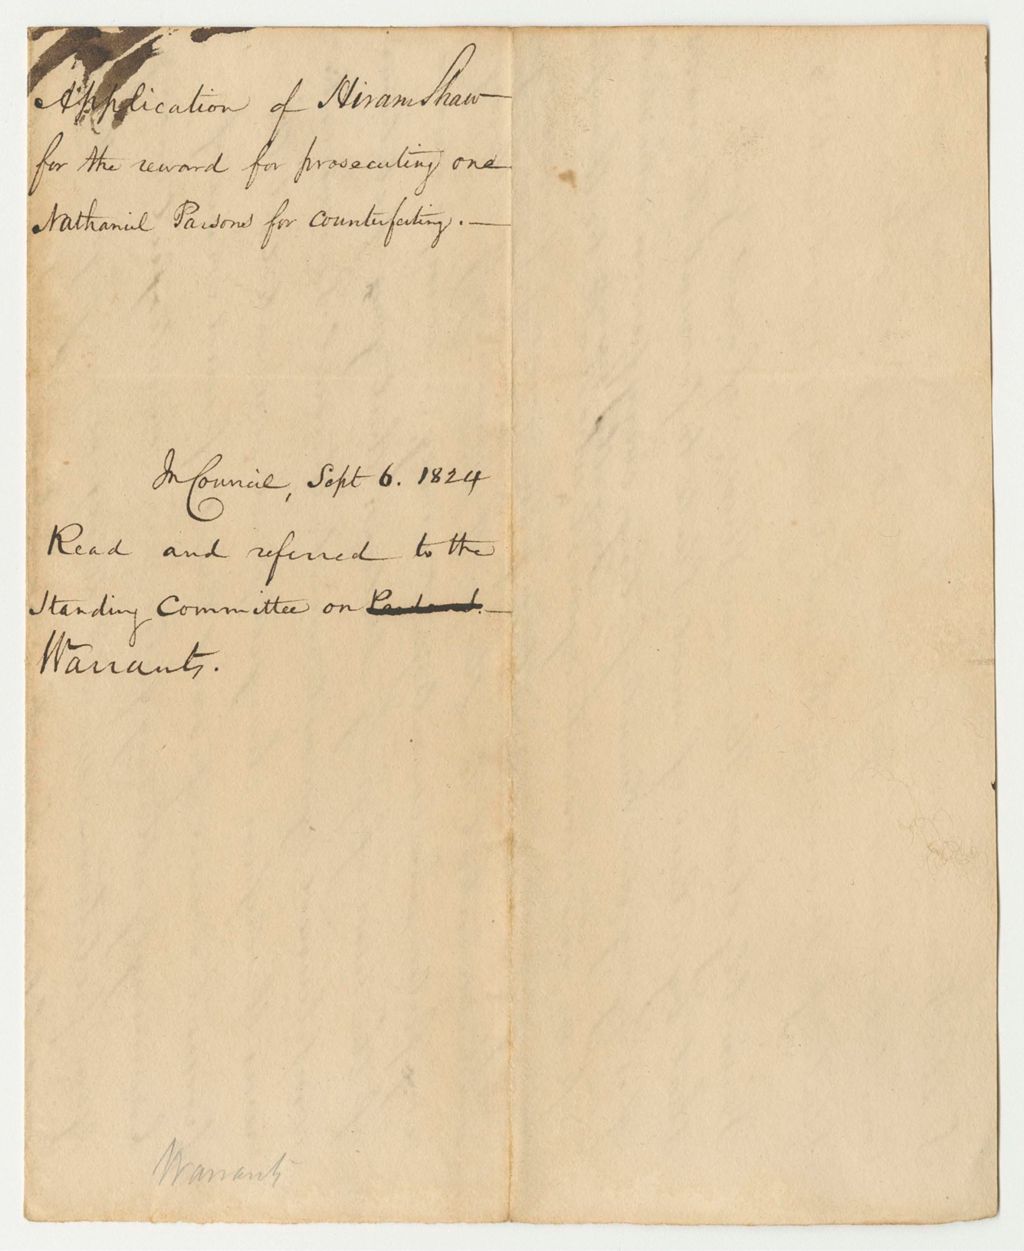 Application of Hiram Shaw
for the reward for prosecuting one
Nathaniel Parsons for counterfeiting. —
In Council, Sept 6. 1824
Read and referred to the
Standing Committee on —
Warrants.
Warrants